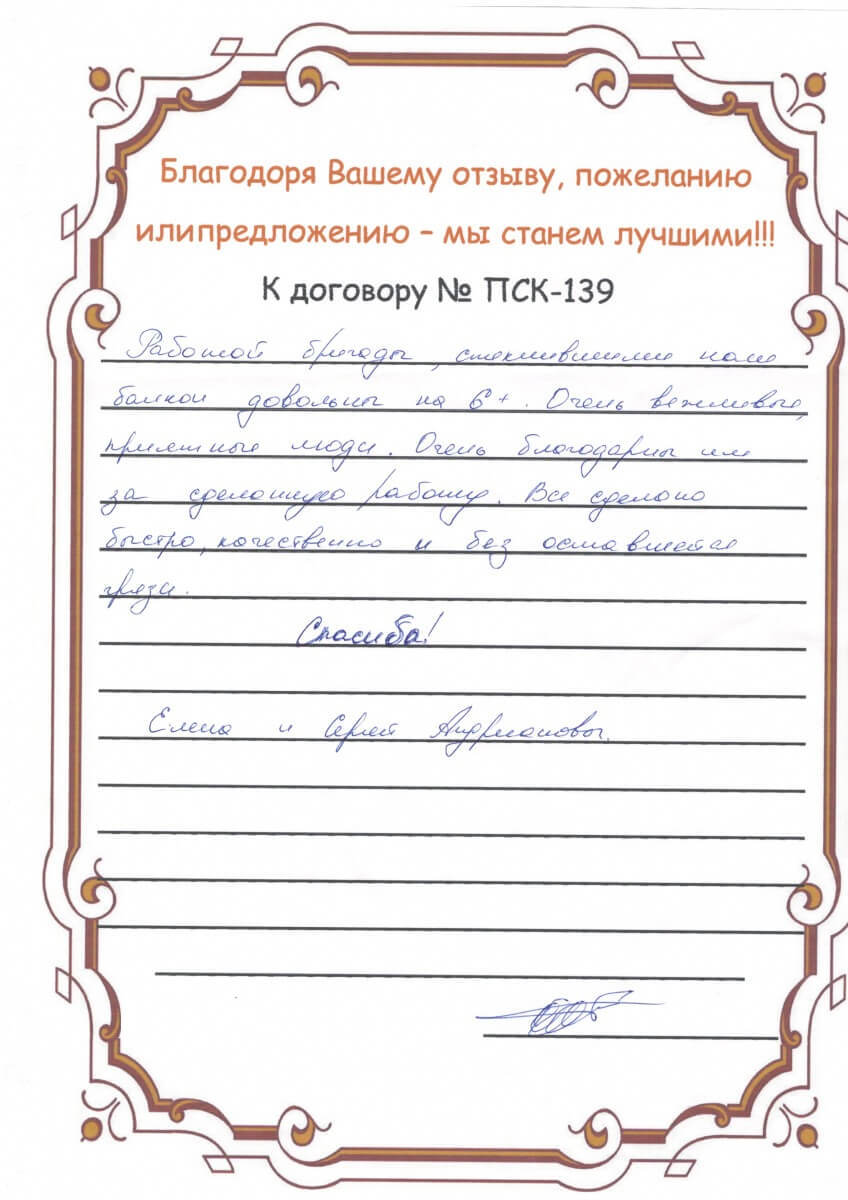 Благодоря Вашему отзыву, пожеланию
илипредложению – мы станем лучшими!!!
К договору № ПСК-139
Работой бригады, стеклившими наш
балкон довольны на 6+. Очень вежливые,
приятные люди. Очень благодарны им
за сделанную работу. Все сделано
быстро, качественно и без оставшейся
грязи.
Спасибо!
Елена и Сергей Андриановы.